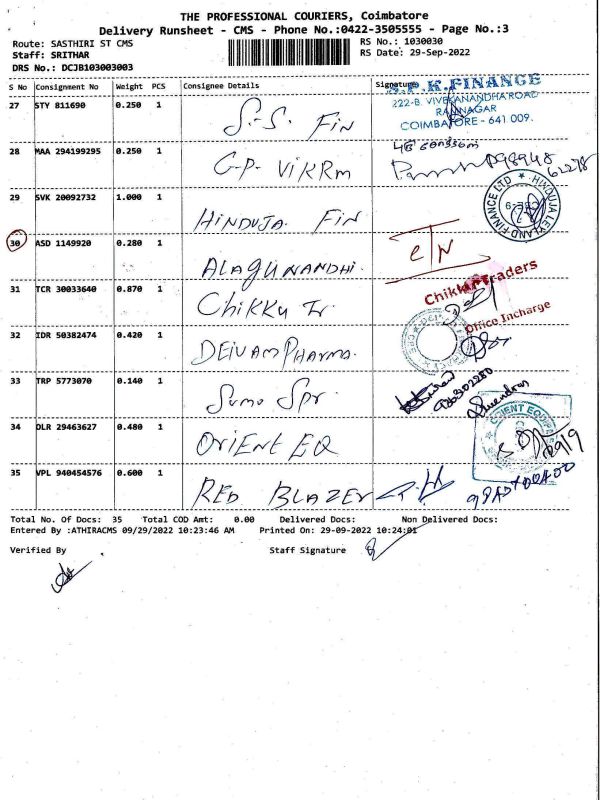 THE PROFESSIONAL COURIERS, Coimbatore
Delivery Runsheet - CMS - Phone No.:0422-3505555 - Page No.:3
Route: SASTHIRI ST CMS
Staff: SRITHAR
DRS No.: DCJB103003003
RS No.: 1030030
RS Date: 29-Sep-2022
S No Consignment No Weight PCS Consignee Details Signature
S.P.K.FINANCE
222-B, VIVEKANANDHA ROAD
RAMNAGAR
COIMBATORE - 641 009.
27 STY 811690 0.250 1 S.-S. FIN
28 MAA 294199295 0.250 1 G-P- VIKRM
29 SVK 20092732 1.000 1 HINDUJA FIN
HINDUJA LEYLAND FINANCE LTD
30 ASD 1149920 0.280 1 ALAGUNANDHI.
31 TCR 30033640 0.870 1 CHIKKU Tr
Chikku Traders
Office Incharge
32 IDR 50382474 0.420 1 DEIVAM PHARMA.
33 TRP 5773070 0.140 1 Sumo Spr.
34 DLR 29463627 0.480 1 ORIENT EQ
35 VPL 940454576 0.600 1 RED BLAZER
Total No. Of Docs: 35 Total COD Amt: 0.00 Delivered Docs: Non Delivered Docs:
Entered By :ATHIRACMS 09/29/2022 10:23:46 AM Printed On: 29-09-2022 10:24:01
Verified By Staff Signature